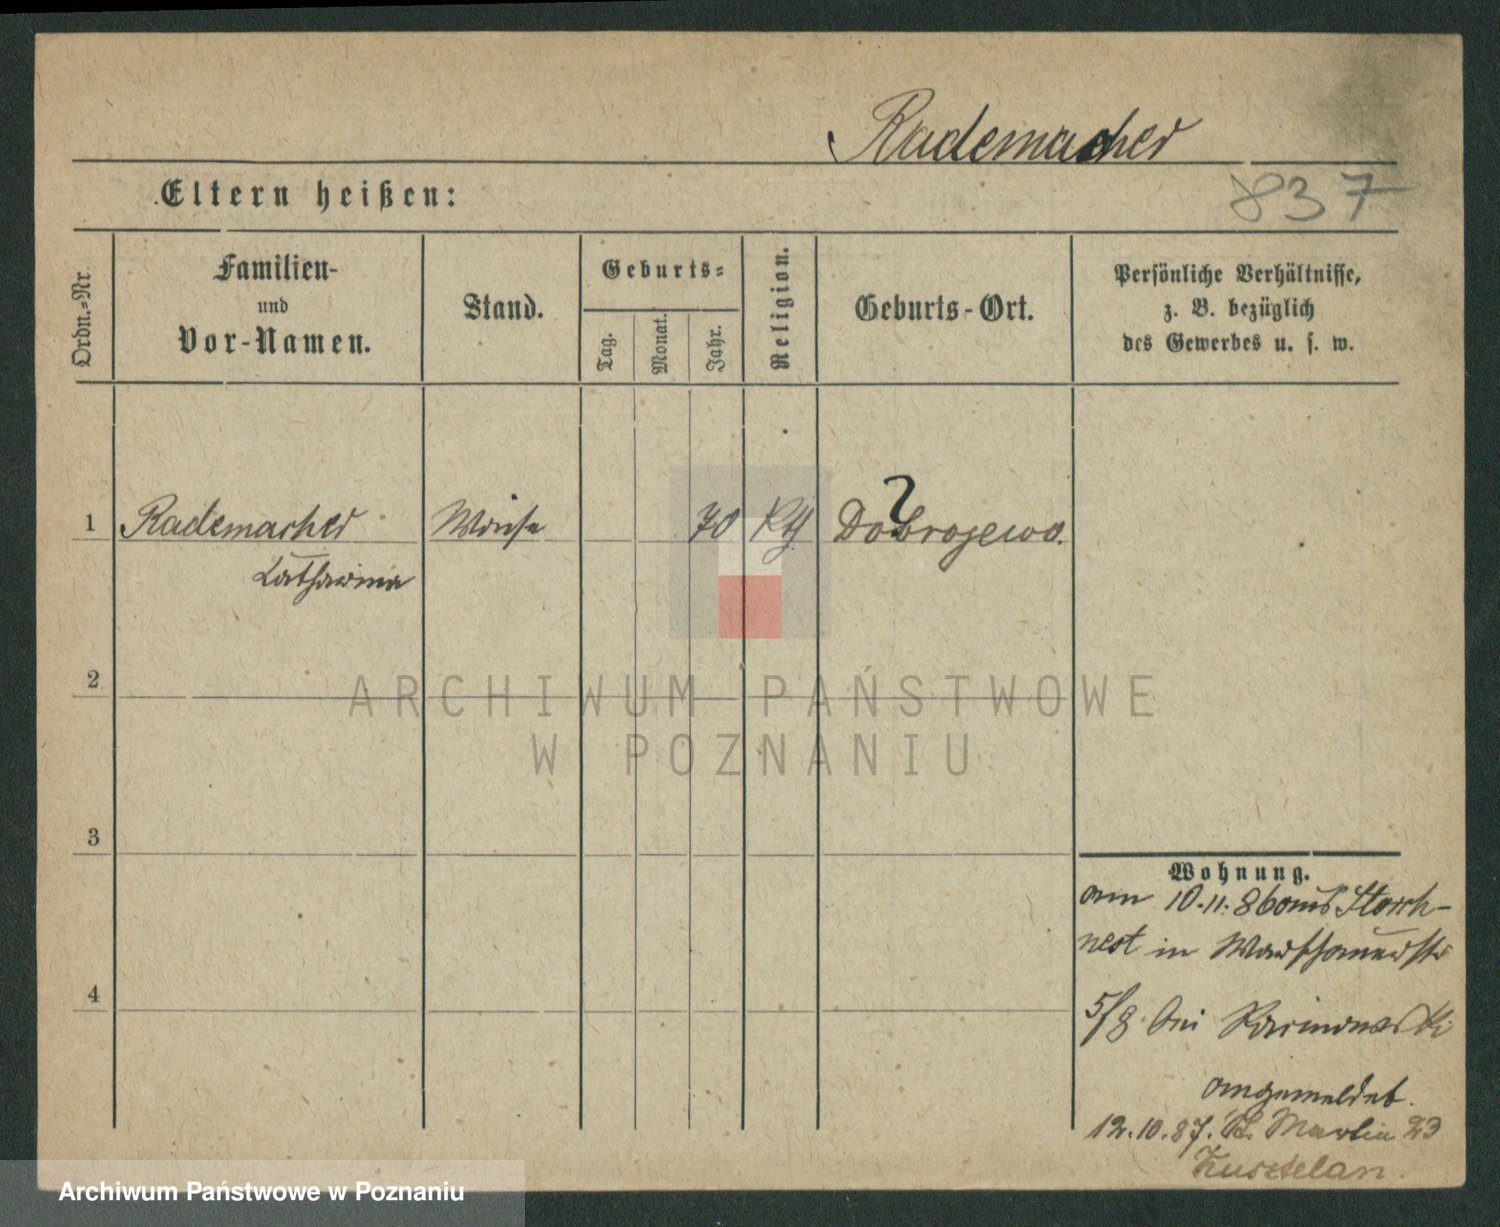 Rademacher
Eltern heißen:
837
Ordn.-Nr.
Familien-
und
Vor-Namen.
Stand.
Geburts-
Tag.
Monat.
Jahr.
Religion.
Geburts-Ort.
Persönliche Verhältnisse,
z. B. bezüglich
des Gewerbes u. s. w.
1 Rademacher 70 Dobrojewo.
Catharina
2
ARCHIWUM PAŃSTWOWE
W POZNANIU
3
4
Wohnung.
am 10.11.86 aus Storch-
nest in Warschauerstr
5/8 bei
angemeldet.
12.10.87. St. Martin 23
Archiwum Państwowe w Poznaniu